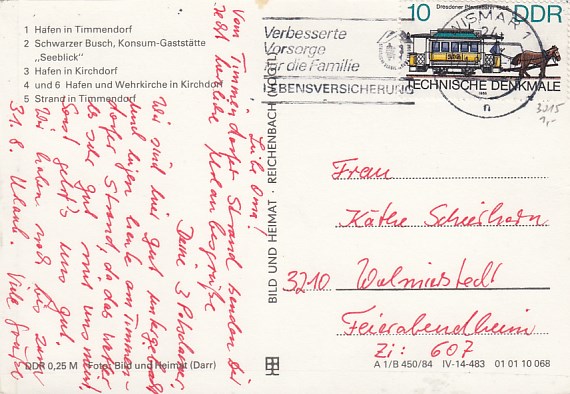 1 Hafen in Timmendorf
2 Schwarzer Busch, Konsum-Gaststätte
„Seeblick"
3 Hafen in Kirchdorf
4 und 6 Hafen und Wehrkirche in Kirchdorf
5 Strand in Timmendorf
Verbesserte
Vorsorge
für die Familie
LEBENSVERSICHERUNG
WISMAR 1
n
Dresdner Pferdebahn 1886
10 DDR
TECHNISCHE DENKMALE
3215
1,-
Liebe Oma!
Vom Timmendorfer Strand senden Dir
jetzt herzliche Urlaubsgrüße
Deine 3 Potsdamer.
Wir sind hier gut untergebracht
und liegen heute am Timmen-
dorfer Strand, da das Wetter
es sehr gut mit uns meint.
Sonst geht's uns gut.
Wir haben noch bis zum
31.8. Urlaub. Viele Grüße
BILD UND HEIMAT · REICHENBACH (VOGTL)
Frau
Käthe
3210 Wolmirstedt
Feierabendheim
Zi: 607
DDR 0,25 M Foto: Bild und Heimat (Darr)
A 1/B 450/84 IV-14-483 01 01 10 068